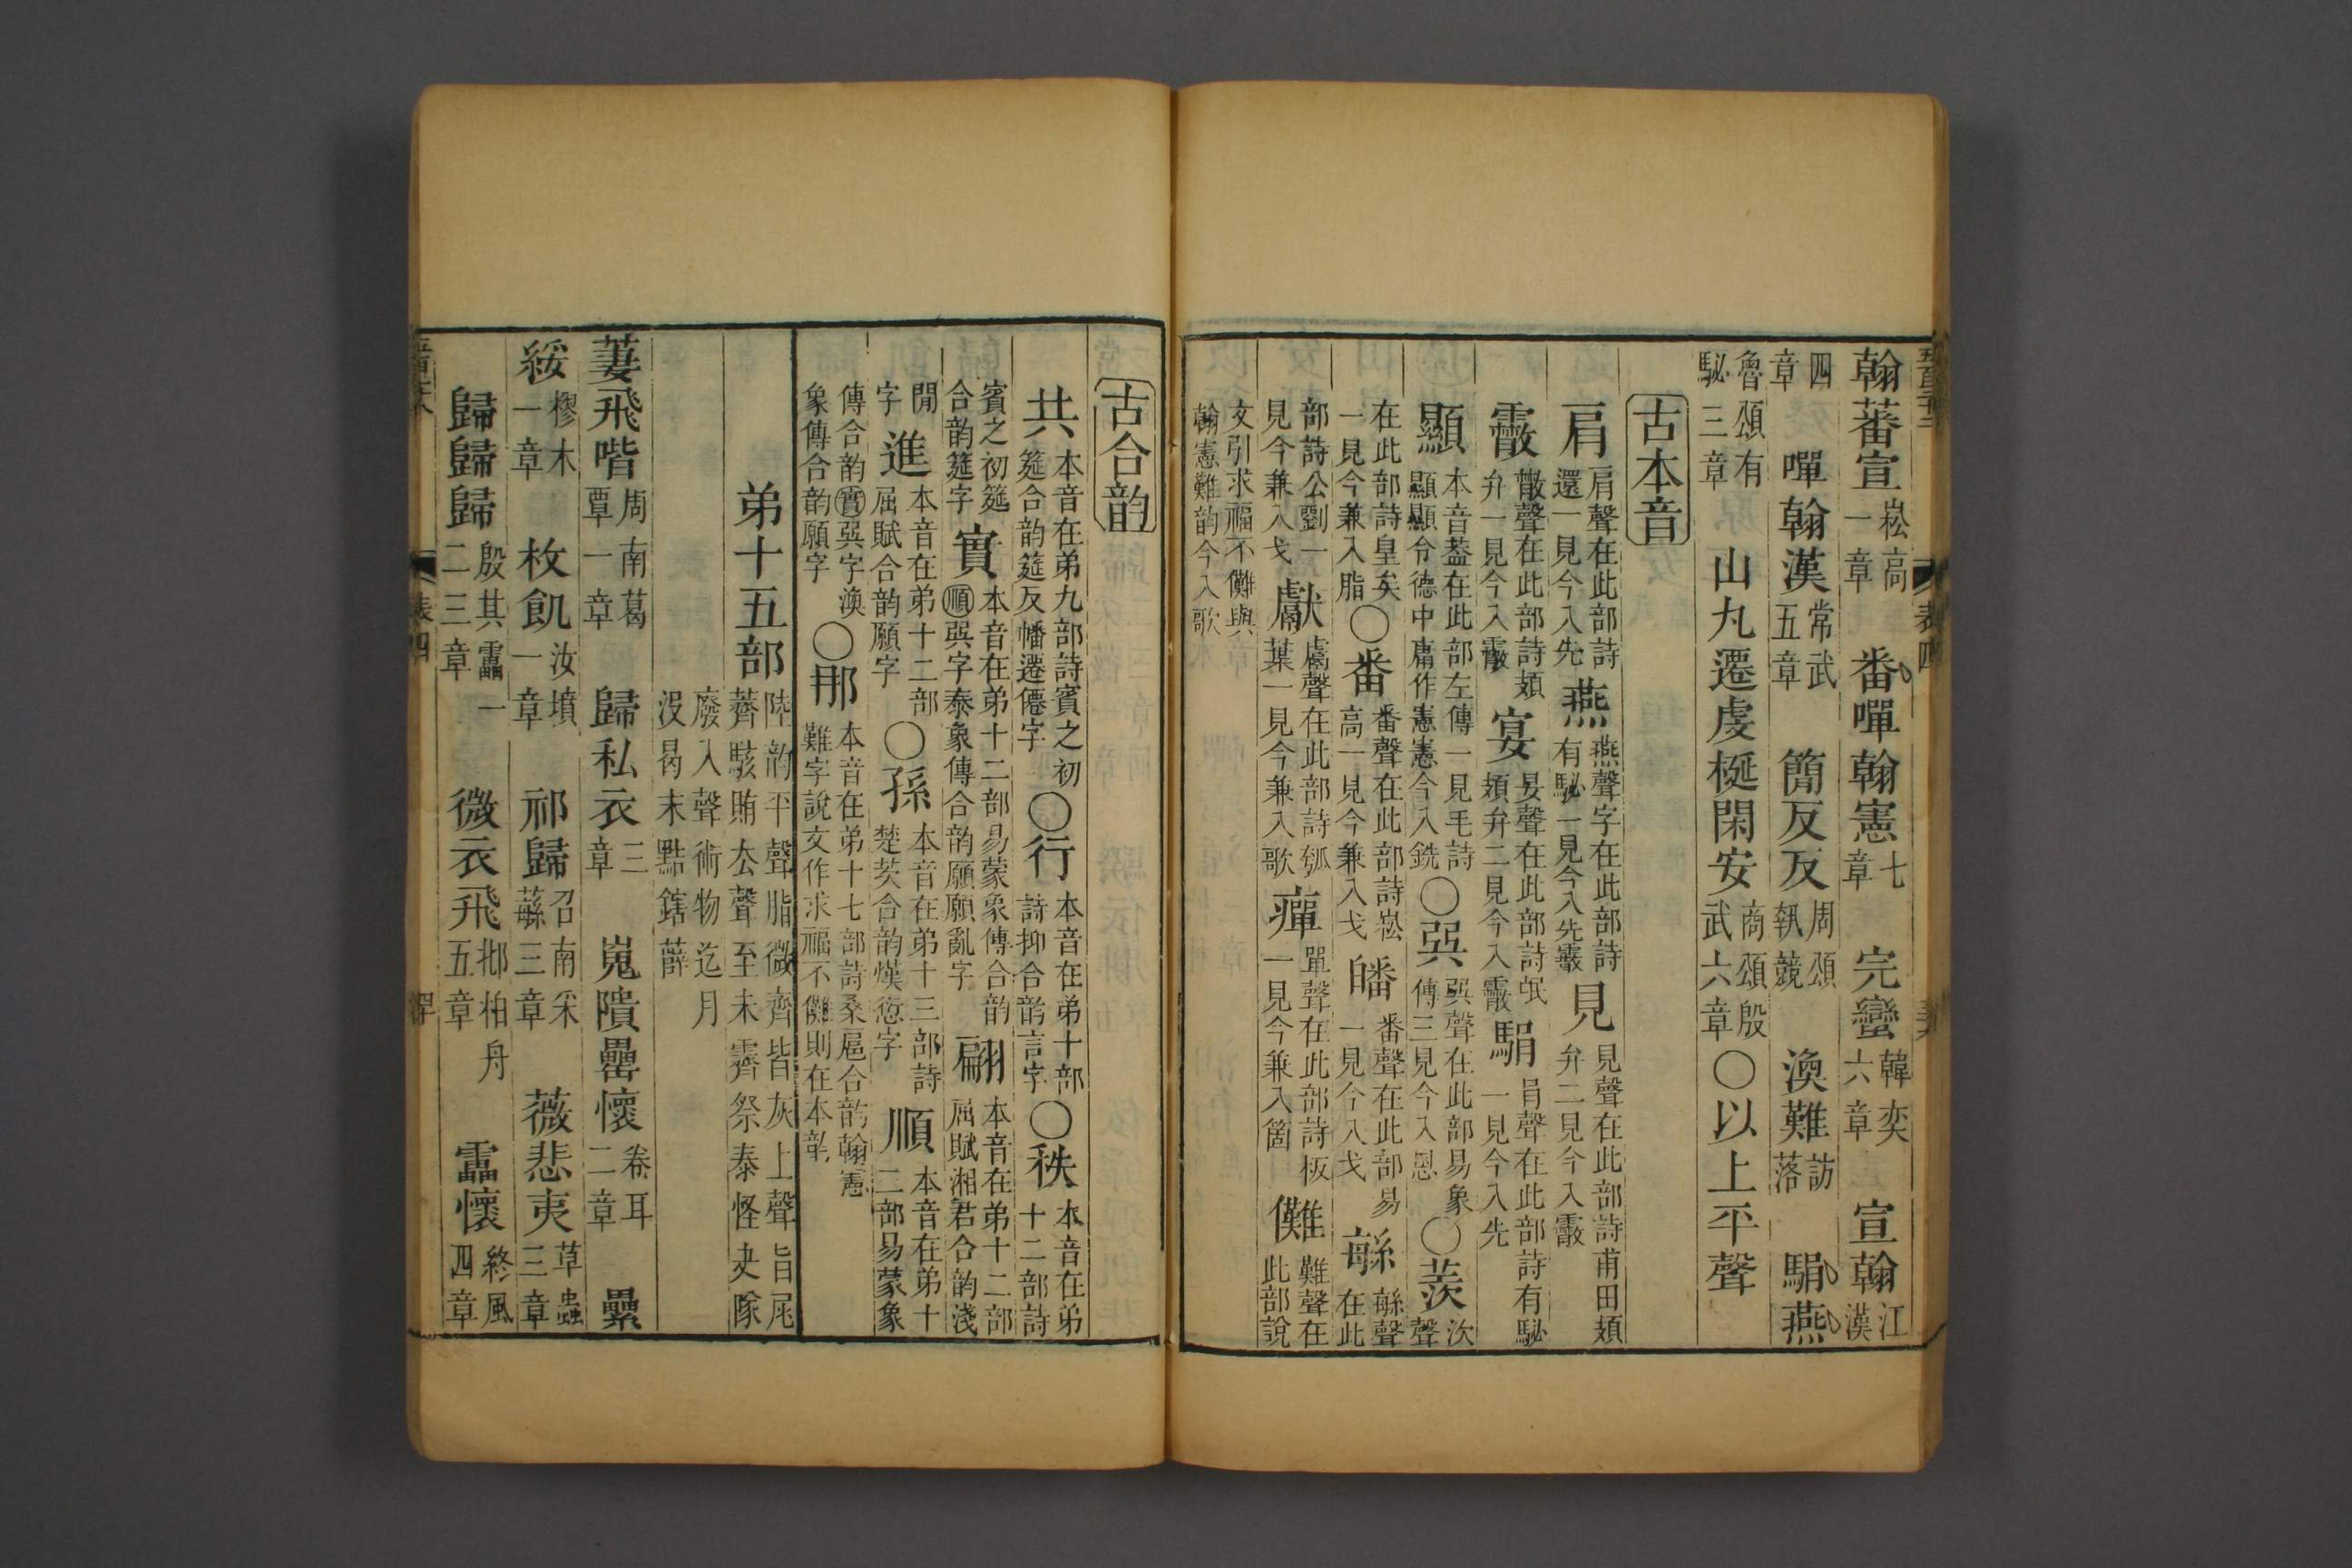 翰蕃宣崧高一章　番嘽翰憲七章　完蠻韓奕六章　宣翰江漢
四章　嘽翰漢常武五章　簡反反周頌執競　渙難訪落　駽燕
魯頌有駜三章　山丸遷虔梴閑安商頌殷武六章〇以上平聲
古本音
肩肩聲在此部詩還一見今入先　燕燕聲字在此部詩有駜一見今入先霰　見見聲在此部詩甫田頍弁二見今入霰
霰散聲在此部詩頍弁一見今入霰　宴妟聲在此部詩氓頍弁二見今入霰　駽肙聲在此部詩有駜一見今入先
顯本音葢在此部左傳一見毛詩顯顯令德中庸作憲憲今入銑〇巽巽聲在此部易象傳三見今入慁〇羨㳄聲
在此部詩皇矣一見今兼入脂〇番番聲在此部詩崧高一見今兼入戈　皤番聲在此部易一見今入戈　緐緐聲在此
部詩公劉一見今兼入戈　獻鬳聲在此部詩瓠葉一見今兼入歌　癉單聲在此部詩板一見今兼入箇　儺難聲在此部說
文引求福不儺與翰憲難韵今入歌
古合韵
共本音在弟九部詩賓之初筵合韵筵反幡遷僊字〇行本音在弟十部詩抑合韵言字〇秩本音在弟十二部詩
賓之初筵合韵筵字　實本音在弟十二部易蒙象傳合韵順巽字泰象傳合韵願願亂字　翩本音在弟十二部屈賦湘君合韵淺
閒字　進本音在弟十二部屈賦合韵願字〇孫本音在弟十三部詩楚茨合韵熯愆字　順本音在弟十三部易蒙象
傳合韵實巽字渙象傳合韵願字〇那本音在弟十七部詩桑扈合韵翰憲難字說文作求福不儺則在本韵
弟十五部陸韵平聲脂微齊皆灰上聲旨尾薺駭賄去聲至未霽祭泰怪夬隊
廢入聲術物迄月沒曷末黠鎋薛
萋飛喈周南葛覃一章　歸私衣三章　嵬隤罍懷卷耳二章　纍
綏樛木一章　枚飢汝墳一章　祁歸召南采蘩三章　薇悲夷草蟲三章
歸歸歸殷其靁一二三章　微衣飛邶柏舟五章　靁懷終風四章